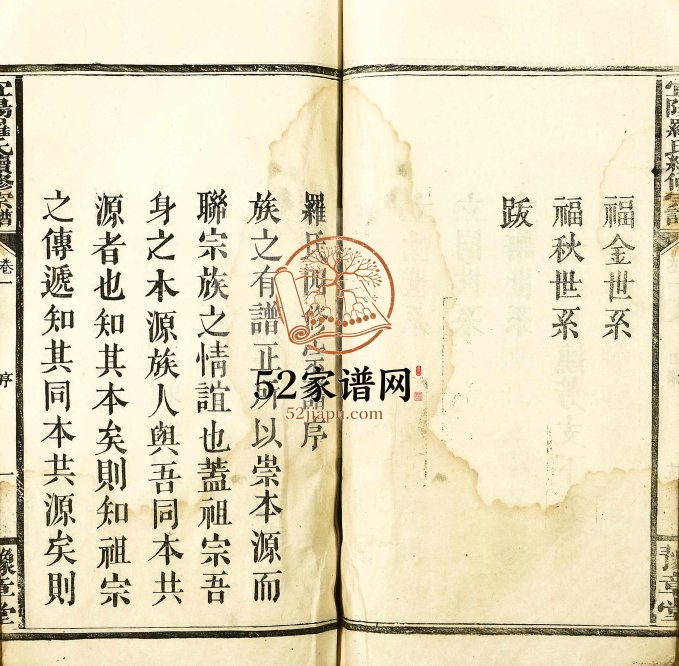 福金世系
福秋世系
跋
羅氏四修宗譜序
族之有譜正所以崇本源而
聯宗族之情誼也蓋祖宗吾
身之本源族人與吾同本共
源者也知其本矣則知祖宗
之傳遞知其同本共源矣則
宜陽羅氏續修宗譜
卷一
序
一
豫章堂
宜陽羅氏續修宗譜
豫章堂
52家谱网
52jiapu.com